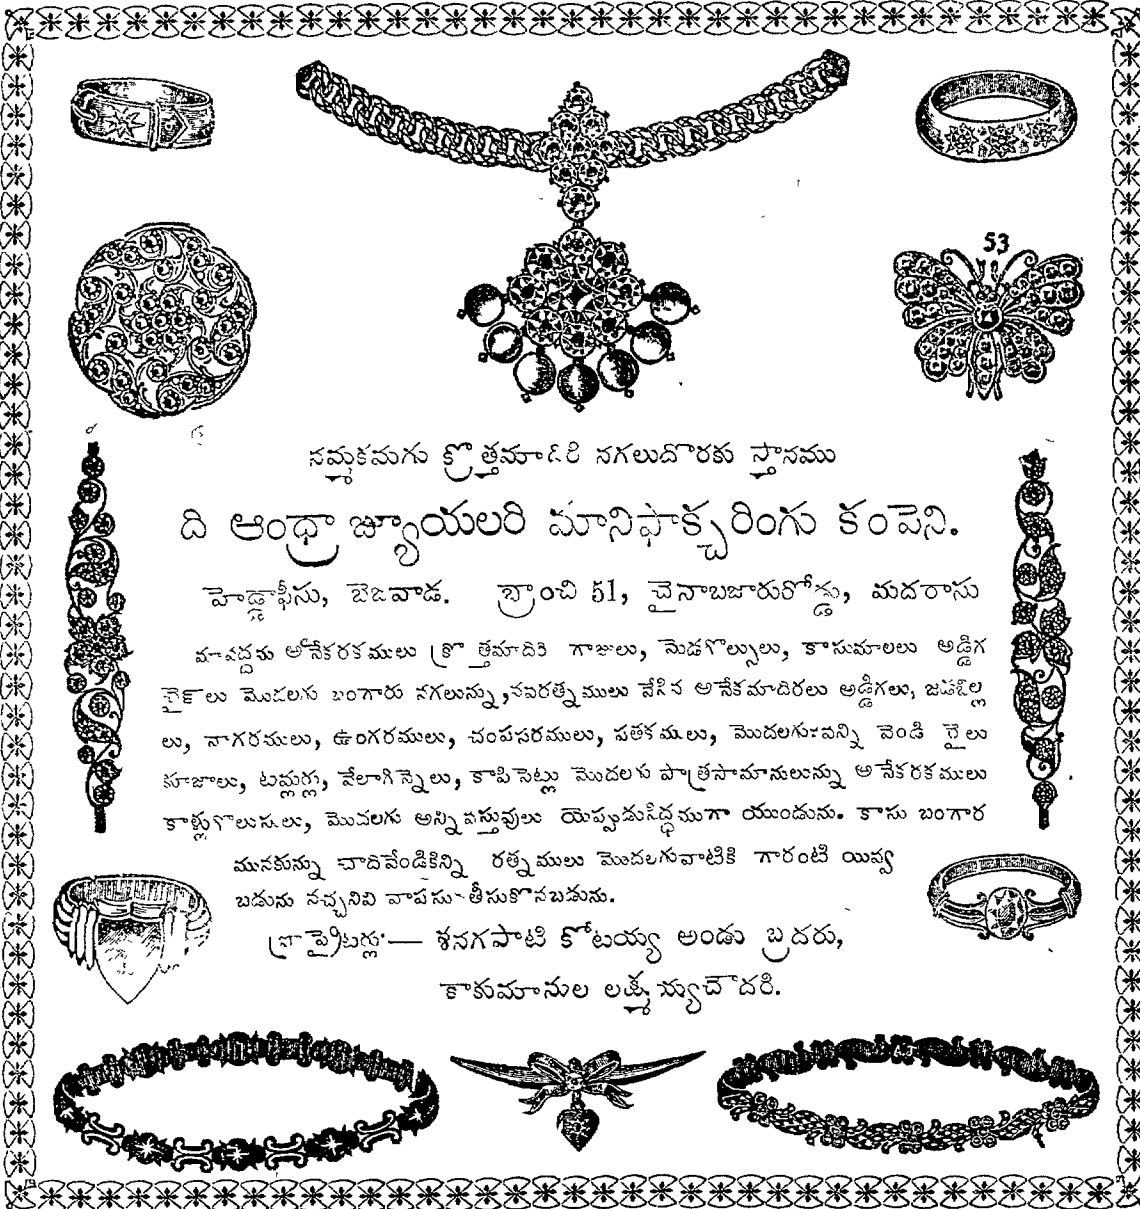 53
నమ్మకమగు క్రొత్తమాదిరి నగలుదొరకు స్తానము
ది ఆంధ్రా జ్యూయలరి మానిఫాక్చరింగు కంపెని.
హెడ్డాఫీసు, బెజవాడ. బ్రాంచి 51, చైనాబజారురోడ్డు, మదరాసు
మావద్దను అనేకరకములు క్రొత్తమాదిరి గాజులు, మెడగొల్సులు, కాసుమాలలు అడ్డిగ
నెక్‌లు మొదలగు బంగారు నగలున్ను, నవరత్నములు వేసిన అనేకమాదిరలు అడ్డిగలు, జడబిల్ల
లు, నాగరములు, ఉంగరములు, చంపసరములు, పతకములు, మొదలగునవన్ని వెండి రైలు
కూజాలు, టమ్లర్లు, వేలాగిన్నెలు, కాపిసెట్లు మొదలగు పాత్రసామానులున్ను అనేకరకములు
కాళ్లుగొలుసులు, మొదలగు అన్ని వస్తువులు యెప్పుడుసిద్ధముగా యుండును. కాసు బంగార
మునకున్ను చాదివేండికిన్ని రత్నములు మొదలగువాటికి గారంటి యివ్వ
బడును నచ్చనివి వాపసు తీసుకొనబడును.
ప్రొప్రైటర్లు— శనగపాటి కోటయ్య అండు బ్రదరు,
కాకుమానుల లక్ష్మయ్యచౌదరి.